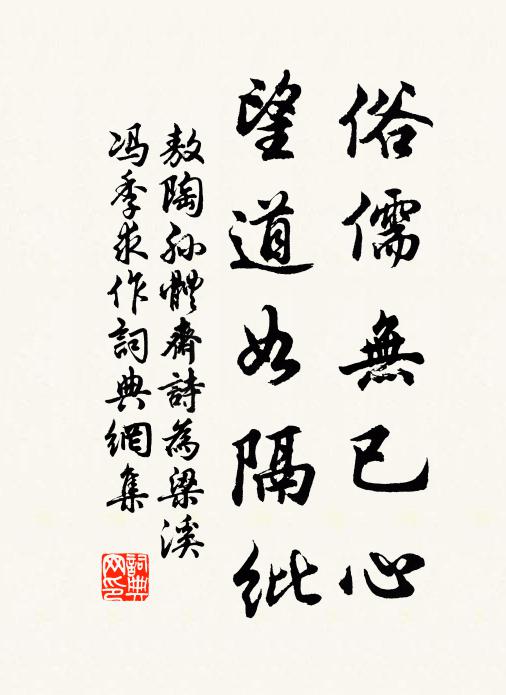 俗儒無已心
望道如隔紕
敖陶孙體齋詩為梁溪
冯季求作詞典網集
詞典网印